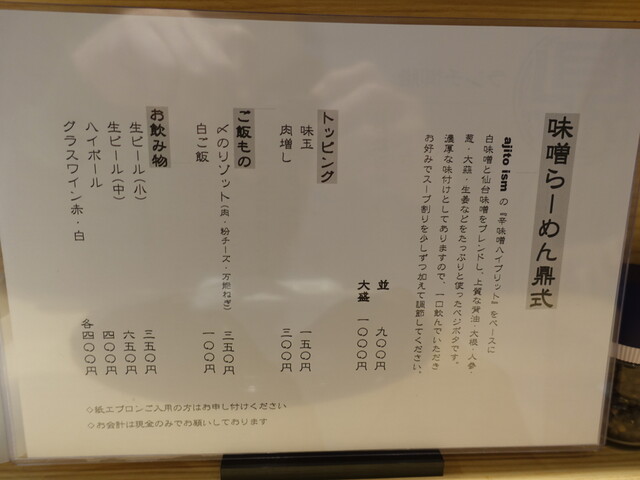 味噌らーめん鼎式
ajito ism の『辛味噌ハイブリット』をベースに
白味噌と仙台味噌をブレンドし、上質な背油・大根・人参・
葱・大蒜・生姜などをたっぷりと使ったベジポタです。
濃厚な味付けとしてありますので、一口飲んでいただき
お好みでスープ割りを少しずつ加えて調節してください。
並 九〇〇円
大盛 一〇〇〇円
トッピング
味玉 一五〇円
肉増し 三〇〇円
ご飯もの
〆のリゾット(肉・粉チーズ・万能ねぎ) 三五〇円
白ご飯 一〇〇円
お飲み物
生ビール(小) 三五〇円
生ビール(中) 六五〇円
ハイボール 四〇〇円
グラスワイン赤・白 各四〇〇円
◇紙エプロンご入用の方はお申し付けください
◇お会計は現金のみでお願いしております